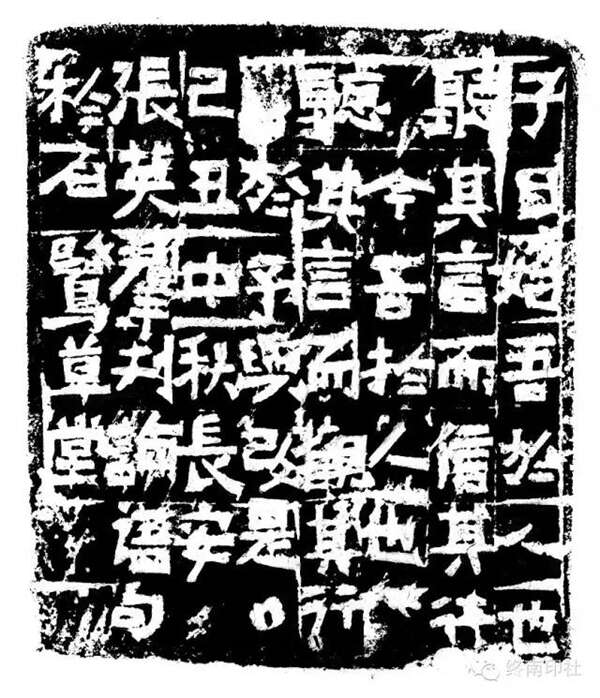 子曰始吾於人也
聽其言而信其行
今吾於人也
聽其言而觀其行
於予與改是
己丑中秋長安
張英群刊論語句
於石草堂
终南印社